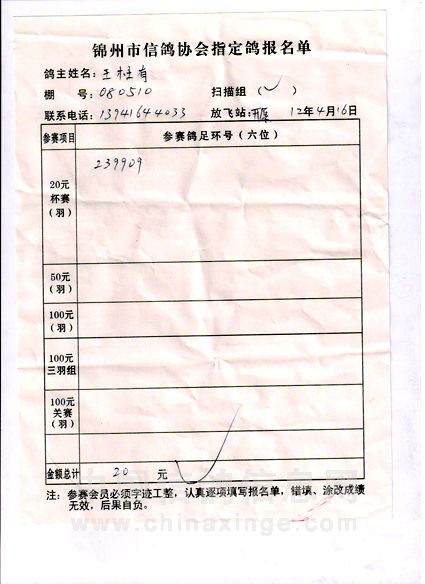 锦州市信鸽协会指定鸽报名单
鸽主姓名:王桂有
棚 号:080510 扫描组（✓）
联系电话:13941644033 放飞站:开原 12年4月16日
参赛项目 参赛鸽足环号(六位)
20元
杯赛
(羽)
239909
50元
(羽)
100元
(羽)
100元
三羽组
100元
关赛
(羽)
金额总计 20 元
注:参赛会员必须字迹工整,认真逐项填写报名单,错填、涂改成绩
无效,后果自负。
www.chinaxinge.com